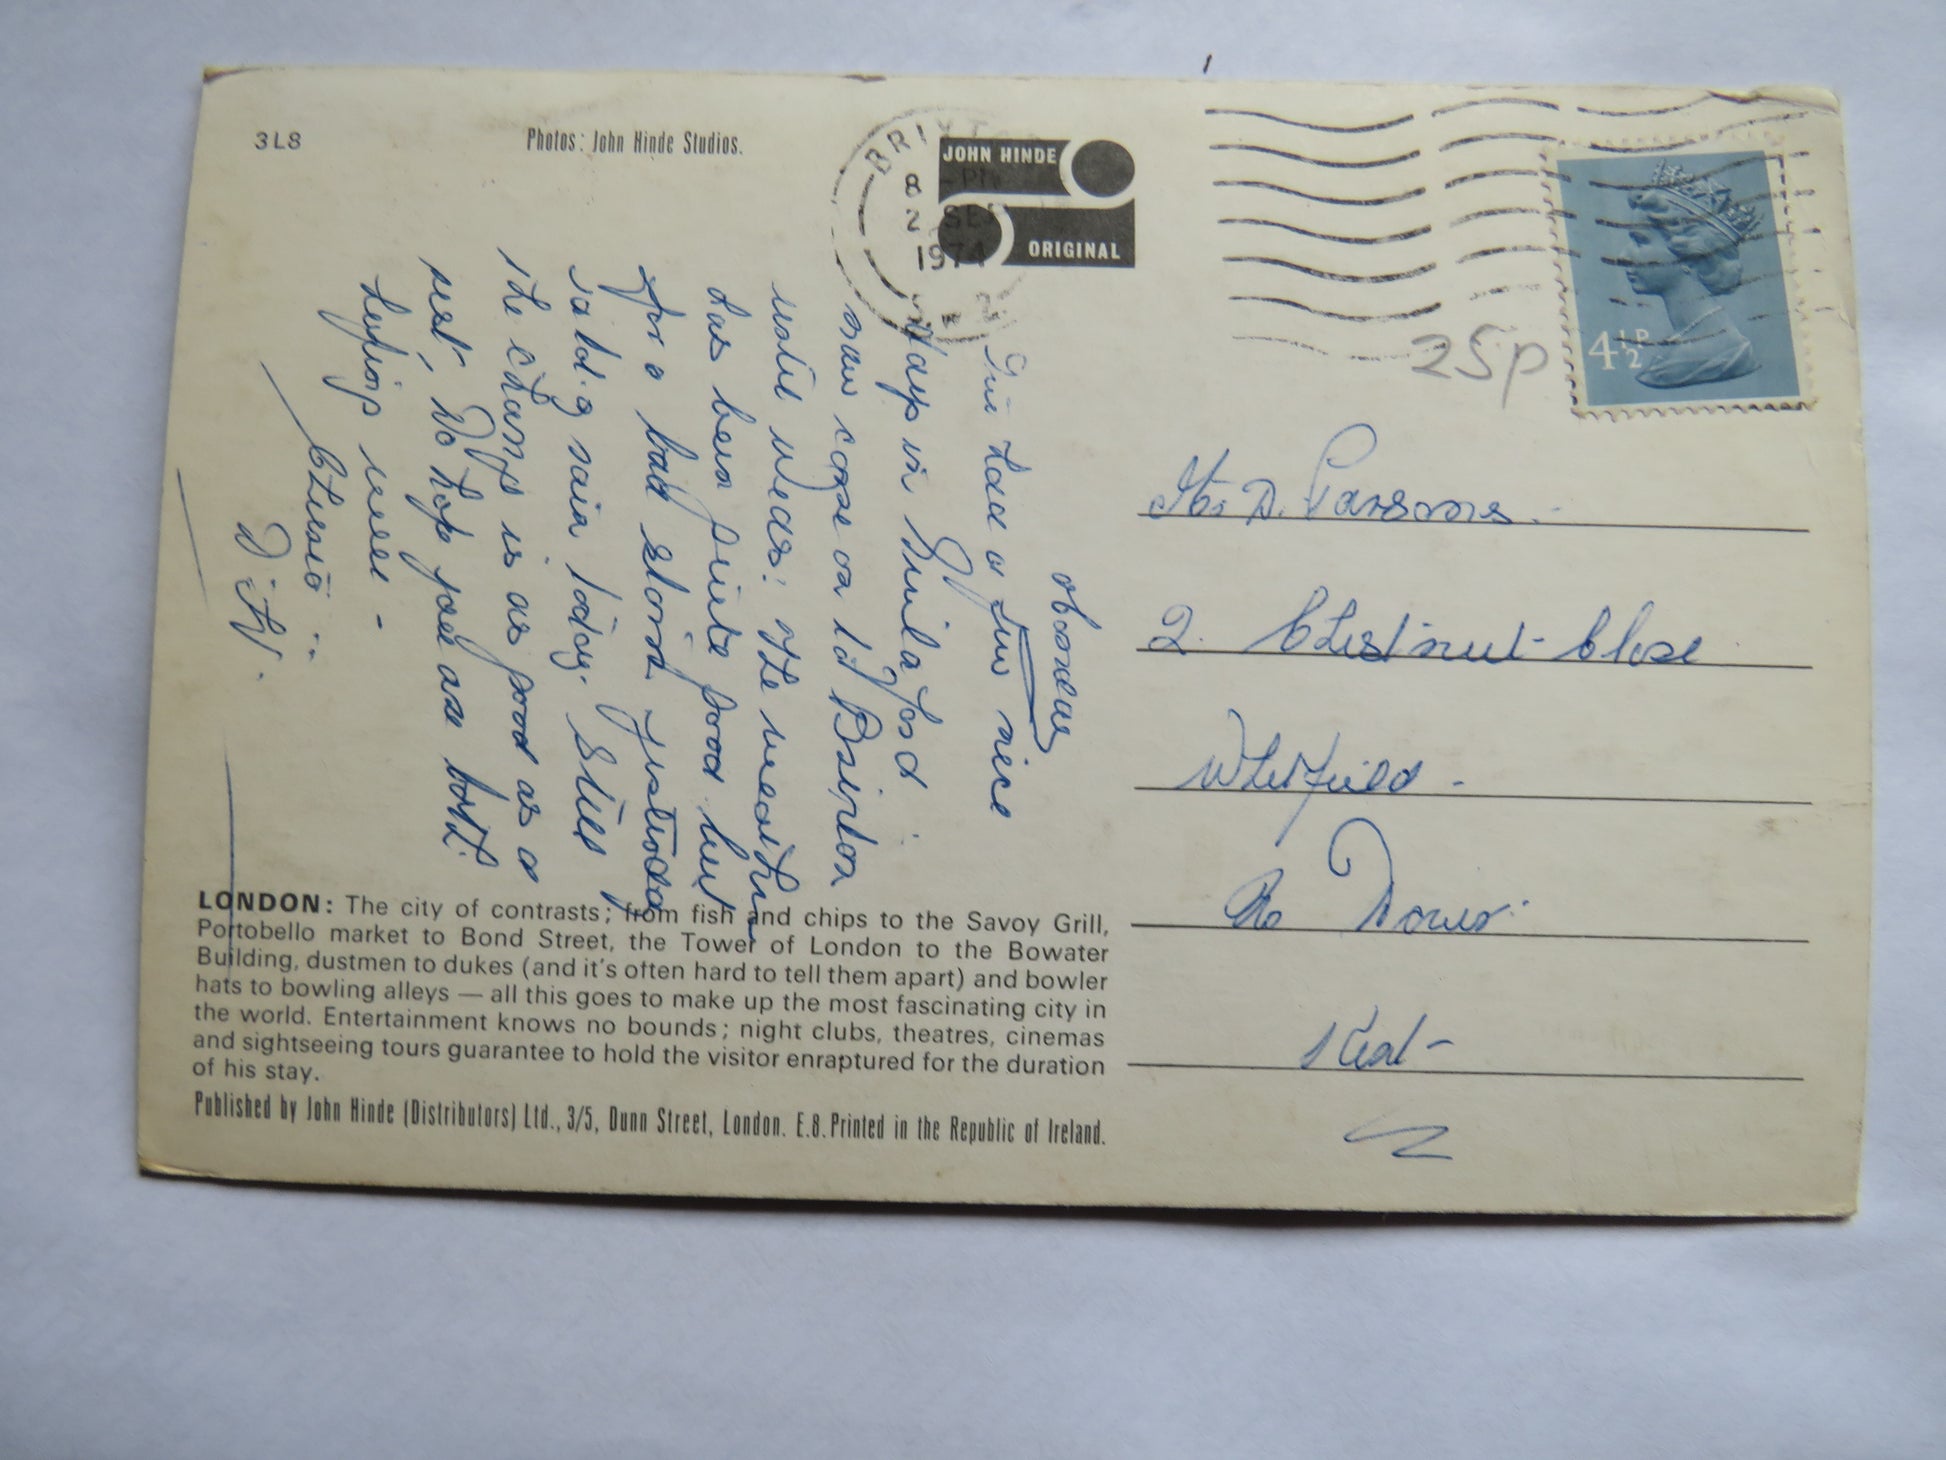 3L8
Photos: John Hinde Studios.
BRIXTON
8 - PM
2 SEP
1974
JOHN HINDE
ORIGINAL
4½P
25p
Monday
had a few nice
days in
now come on to Brixton
until Weds: The weather
has been quite good but
for a bad storm yesterday
cold & rain today. Still
the change is as good as a
rest, Do hope you are both
keeping well -
Cheerio
D. Parsons.
2. Chestnut Close
Whitfield -
Nr Dover
Kent -
LONDON: The city of contrasts; from fish and chips to the Savoy Grill,
Portobello market to Bond Street, the Tower of London to the Bowater
Building, dustmen to dukes (and it's often hard to tell them apart) and bowler
hats to bowling alleys — all this goes to make up the most fascinating city in
the world. Entertainment knows no bounds; night clubs, theatres, cinemas
and sightseeing tours guarantee to hold the visitor enraptured for the duration
of his stay.
Published by John Hinde (Distributors) Ltd., 3/5, Dunn Street, London. E.8. Printed in the Republic of Ireland.